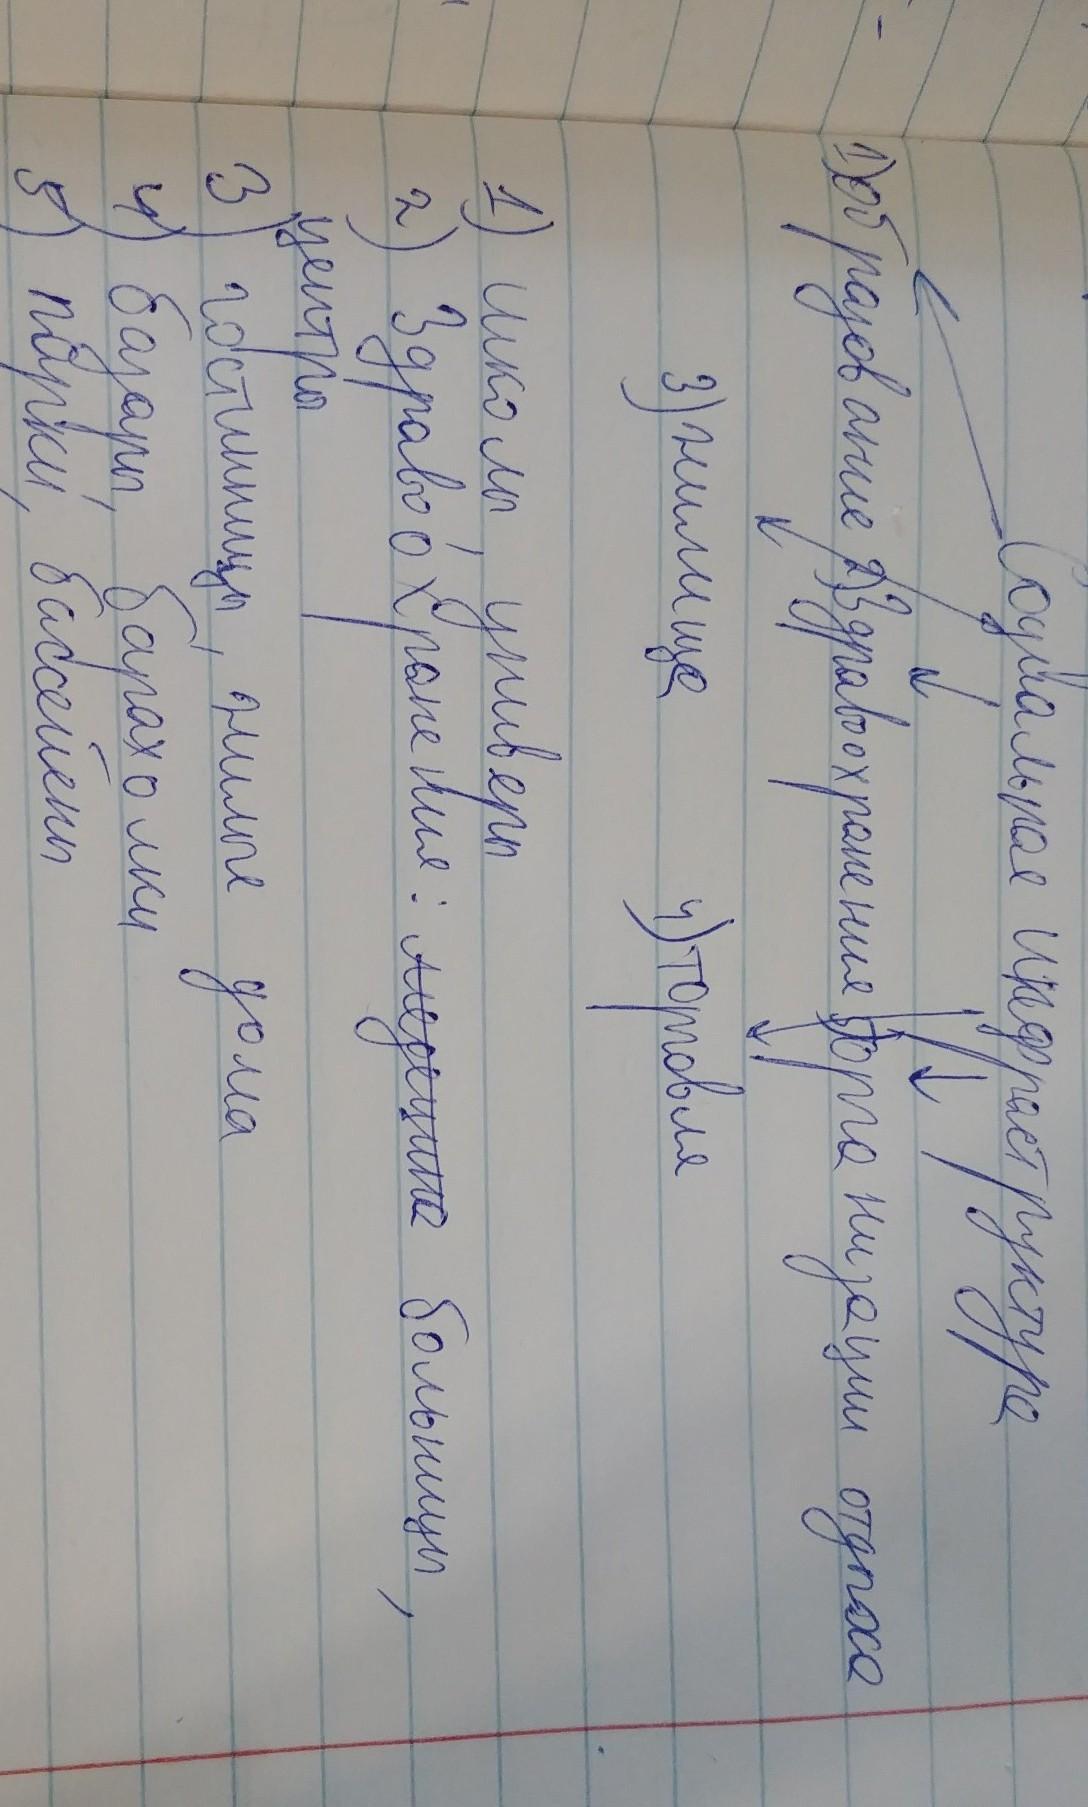 Социальная инфраструктура
1) образование 2) Здравоохранения 5) организации отдыха
3) жилище 4) торговля
1) Школы, универы
2) Здравоохранения: больницы,
центры
3) гостиницы, жилые дома
4) базары, барахолки
5) парки, бассейны